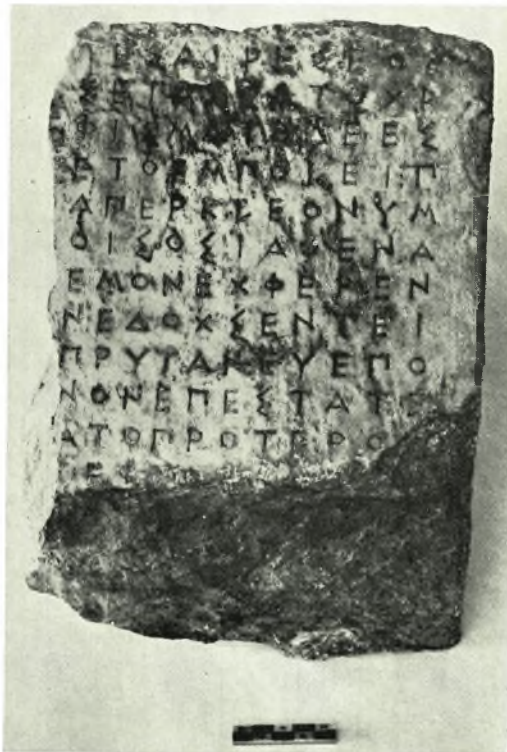 ΕΧΑΙΡΕΣΕΟΣ
ΦΙΣΜΑΤΟΔΕΕΣ
ΥΤΟΕΜΠΟΛΕΙΠ
ΑΠΕΡΚΣΕΟΝΥΜ
ΟΙΣΟΣΙΑΜΕΝΑ
ΕΜΟΝΕΧΦΕΡΕΝ
ΝΕΔΟΧΣΕΝΤΕΙ
ΠΡΥΤΑΝΕΥΕΠΟ
ΝΟΝΕΠΕΣΤΑΤΕ
ΑΤΟΠΡΟΤΕΡΟ